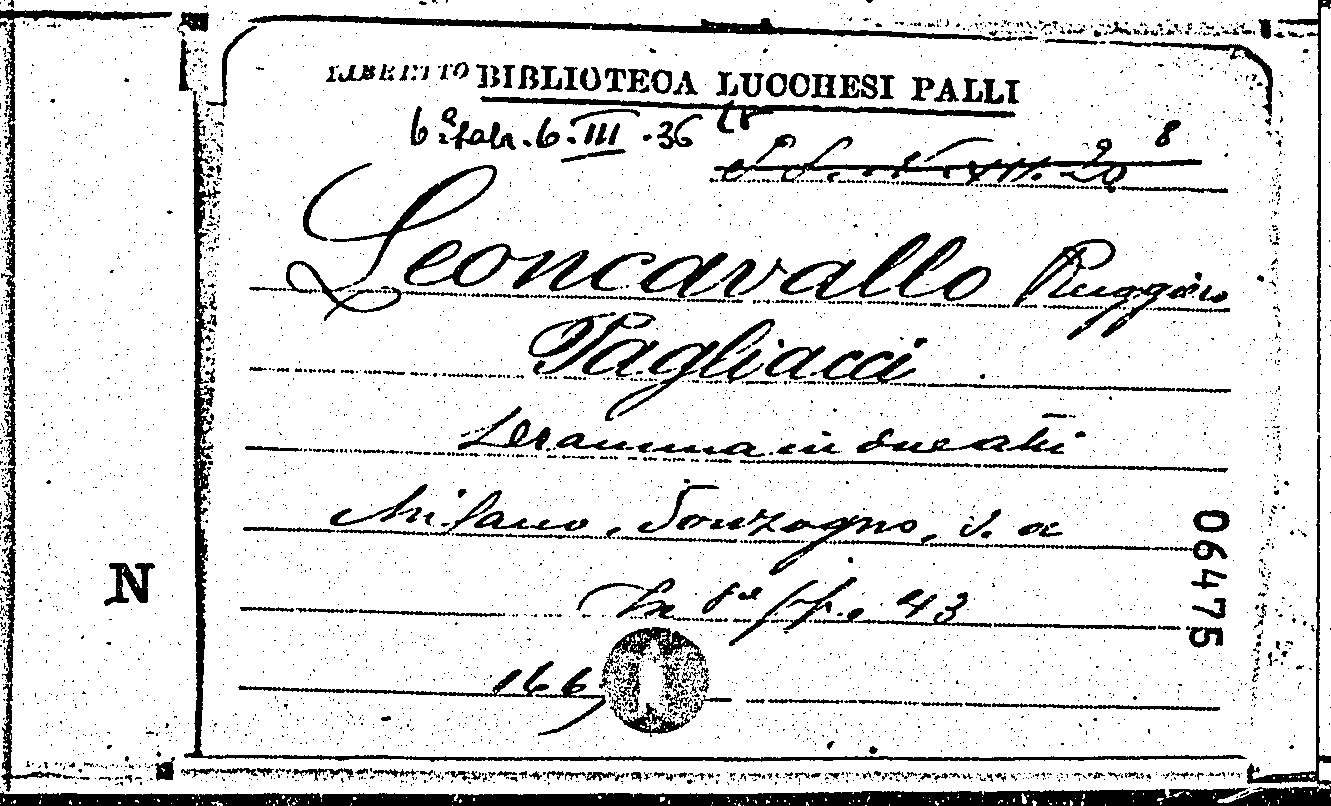 LIBRETTO BIBLIOTECA LUCCHESI PALLI
6ª Sala. 6. III. 36 18
8
Leoncavallo Ruggiero
Pagliacci
Dramma in due atti
Milano, Sonzogno, s. a
In 8º pp. 43
06475
N
166